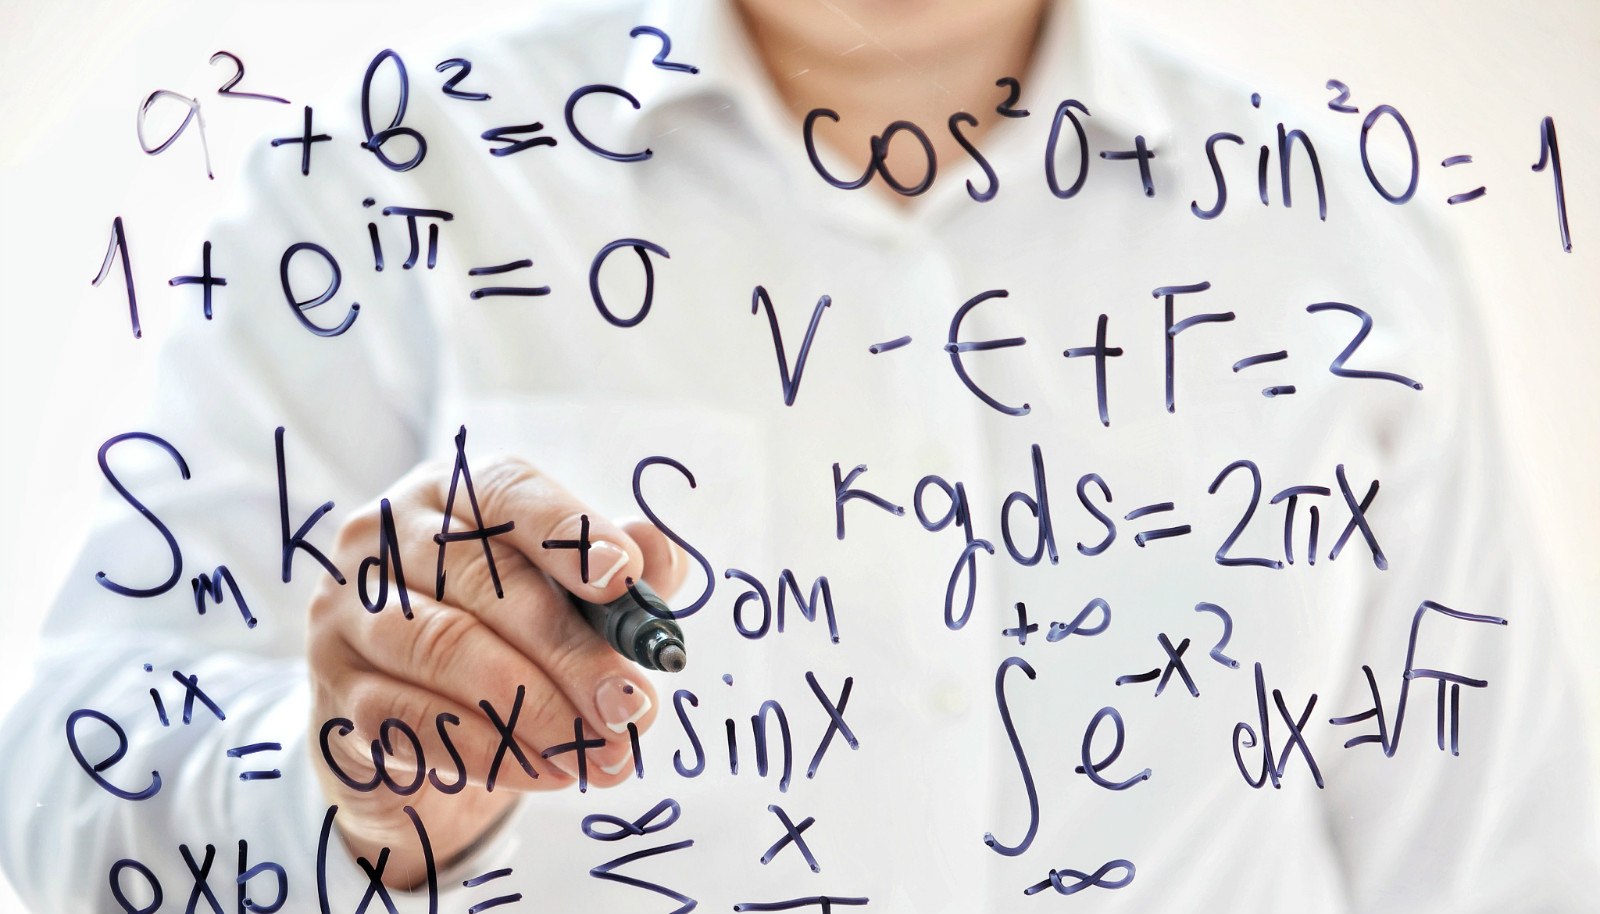 a² + b² = c²
cos²0 + sin²0 = 1
1 + e^iπ = 0
V - E + F = 2
∫m k dA + ∫∂M kg ds = 2πX
e^ix = cosx + i sinx
+∞
∫ e^-x² dx = √π
-∞
exp(x) = ∞ Σ x